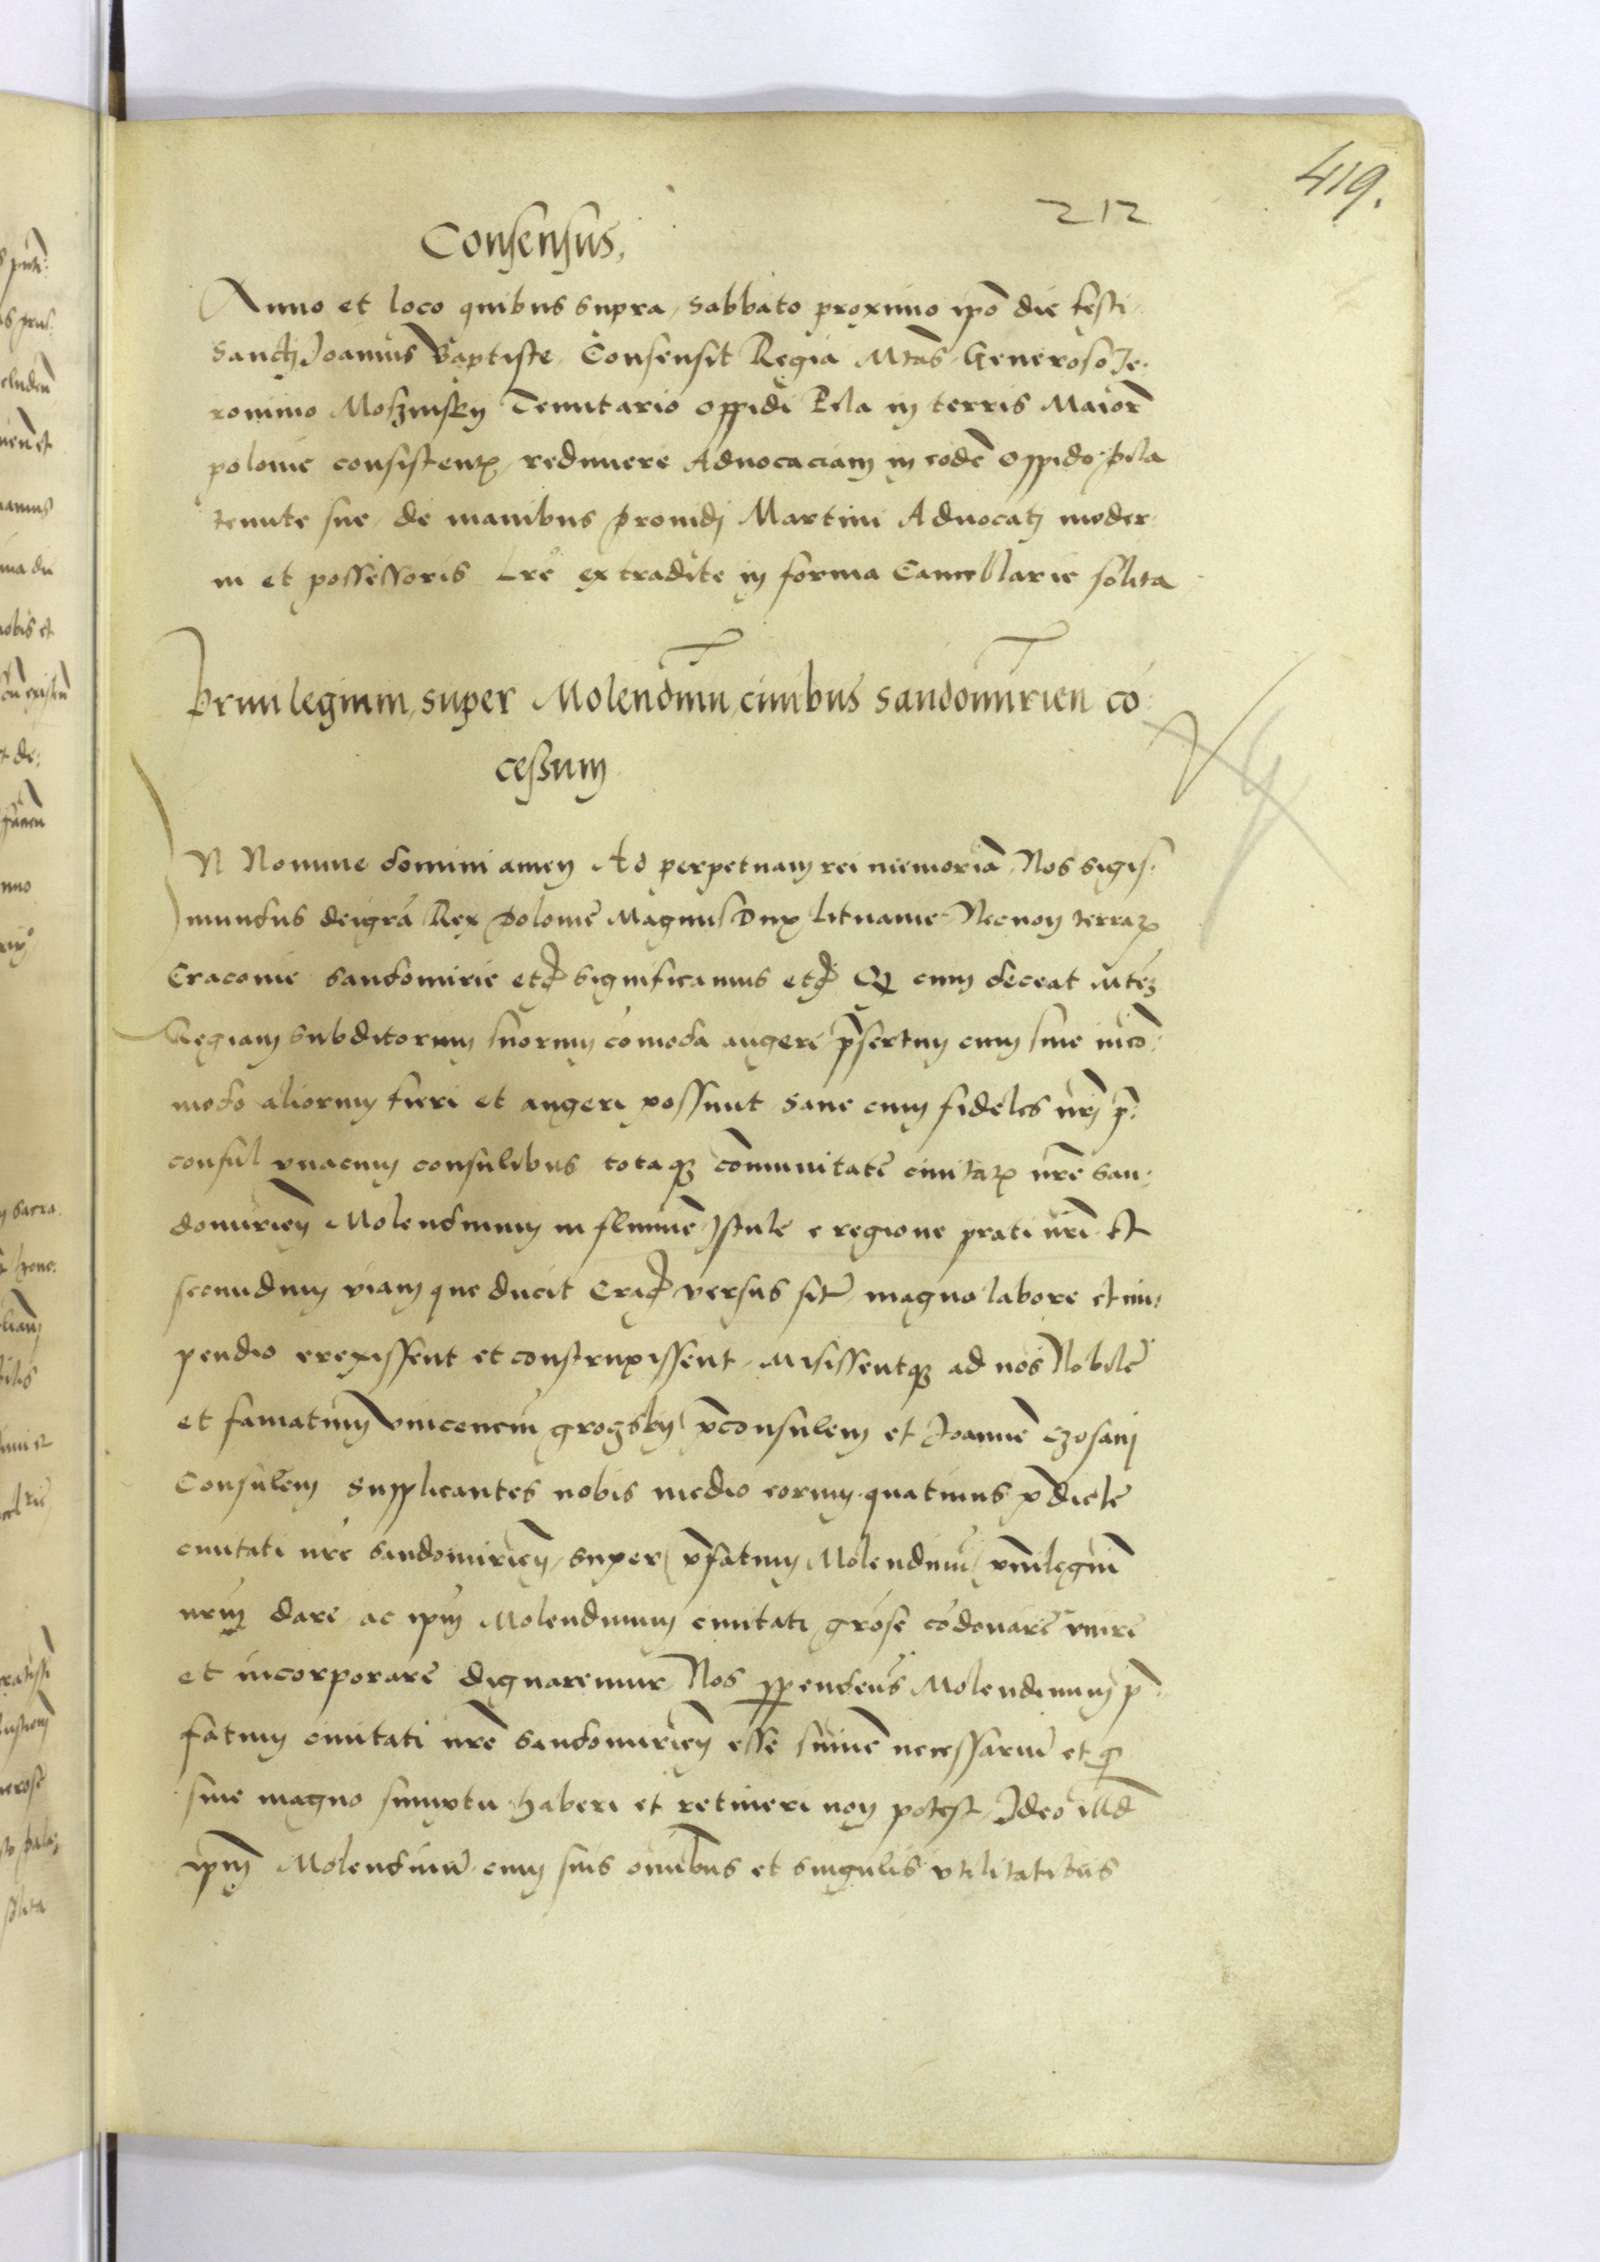 419.
212
Consensus,
Anno et loco quibus supra, sabbato proximo ipō die festi
Sancti Joannis Baptiste Consensit Regia Mtas Generoso Je-
ronimo Moszinsky Tenutario oppidi Pila in terris Maiorꝭ
polonie consistenꝭ, redimere Aduocaciam in eodē oppido pila
tenute sue, de manibus prouidi Martini Aduocati moder-
ni et possessoris Lrē extradite in forma Cancellarie solita
Priuilegium, super Molendinū, ciuibus sandomirien cō-
cessum
IN Nomine domini amen Ad perpetuam rei memoriā, Nos Sigis-
mundus dei grā Rex Polonie Magnus Dux Lituanie Necnon terraꝝ
Cracouie Sandomirie etc̄ Significamus etc̄ Q̄ cum deceat Mtēm
Regiam subditorum suorum cōmoda augere p̄sertim cum sine incō-
modo aliorum fieri et augeri possunt Sane cum fideles nrī p̄-
consul vnacum consulibus totaqꝫ cōmunitate ciuitatꝭ nrē San-
domirien̄ Molendinum in flumine Istule e regione prati nrī Et
secundum viam que ducit Crac̄ versus sitū magno labore et im-
pendio erexissent et construxissent, Misissentqꝫ ad nos Nobilē
et famatum vincenciū grogsky p̄consulem et Joannē Czosanj
Consulem supplicantes nobis medio eorum quatinus p̄dicte
ciuitati nrē Sandomirien̄, super p̄fatum Molendinū priuilegiū
nrm̄ dare, ac ipm̄ Molendinum ciuitati grōse cōdonare vnire
et incorporare dignaremur, Nos ppendens Molendinum p̄-
fatum ciuitati nrē Sandomirien̄ esse sumē necessariū et qꝫ
sine magno sumptu haberi et retineri non potest, Ideo illd
ipm̄ Molendinū cum suis om̄ibus et singulis vtilitatibus